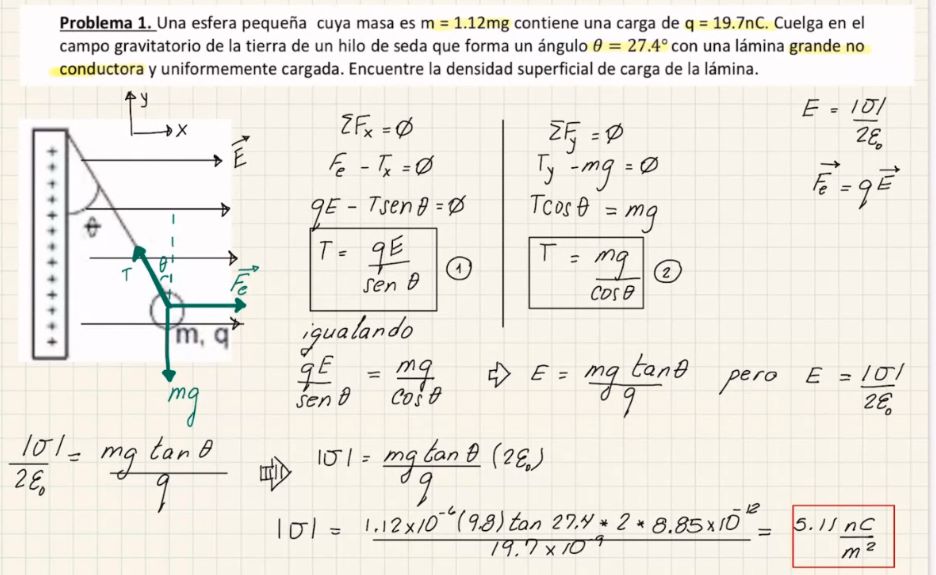 Problema 1. Una esfera pequeña cuya masa es m = 1.12mg contiene una carga de q = 19.7nC. Cuelga en el
campo gravitatorio de la tierra de un hilo de seda que forma un ángulo θ = 27.4° con una lámina grande no
conductora y uniformemente cargada. Encuentre la densidad superficial de carga de la lámina.
y
x
E⃗
θ
T θ
F⃗e
m, q
mg
ΣFx = 0
Fe - Tx = 0
qE - Tsen θ = 0
T = qE / sen θ (1)
ΣFy = 0
Ty - mg = 0
Tcos θ = mg
T = mg / cos θ (2)
E = |σ| / 2ε₀
F⃗e = qE⃗
igualando
qE / sen θ = mg / cos θ ⇨ E = mg tan θ / q pero E = |σ| / 2ε₀
|σ| / 2ε₀ = mg tan θ / q ⇨ |σ| = mg tan θ / q (2ε₀)
|σ| = 1.12x10⁻⁶(9.8) tan 27.4 * 2 * 8.85x10⁻¹² / 19.7x10⁻⁹ = 5.11 nC / m²